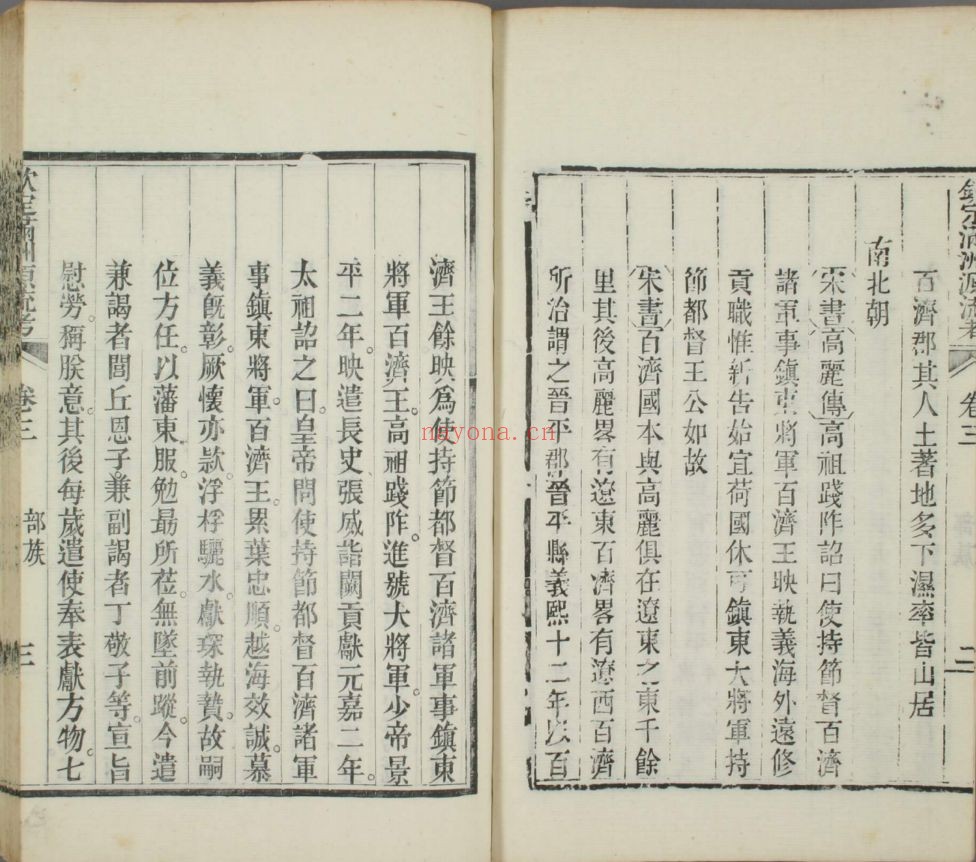 欽定滿洲源流考 卷三 二
百濟郡其人土著地多下濕率皆山居
南北朝
宋書高麗傳高祖踐阼詔曰使持節督百濟
諸軍事鎮東將軍百濟王映執義海外遠修
貢職惟新告始宜荷國休可鎮東大將軍持
節都督王公如故
宋書百濟國本與高麗俱在遼東之東千餘
里其後高麗畧有遼東百濟畧有遼西百濟
所治謂之晉平郡晉平縣義熙十二年以百
濟王餘映爲使持節都督百濟諸軍事鎮東
將軍百濟王高祖踐阼進號大將軍少帝景
平二年映遣長史張威詣闕貢獻元嘉二年
太祖詔之曰皇帝問使持節都督百濟諸軍
事鎮東將軍百濟王累葉忠順越海效誠慕
義旣彰厥懷亦欵浮桴驪水獻琛執贄故嗣
位方任以藩東服勉朂所莅無墜前蹤今遣
兼謁者閭丘恩子兼副謁者丁敬子等宣旨
慰勞稱朕意其後每歲遣使奉表獻方物七
欽定滿洲源流考 卷三 部族 三
nayona.cn